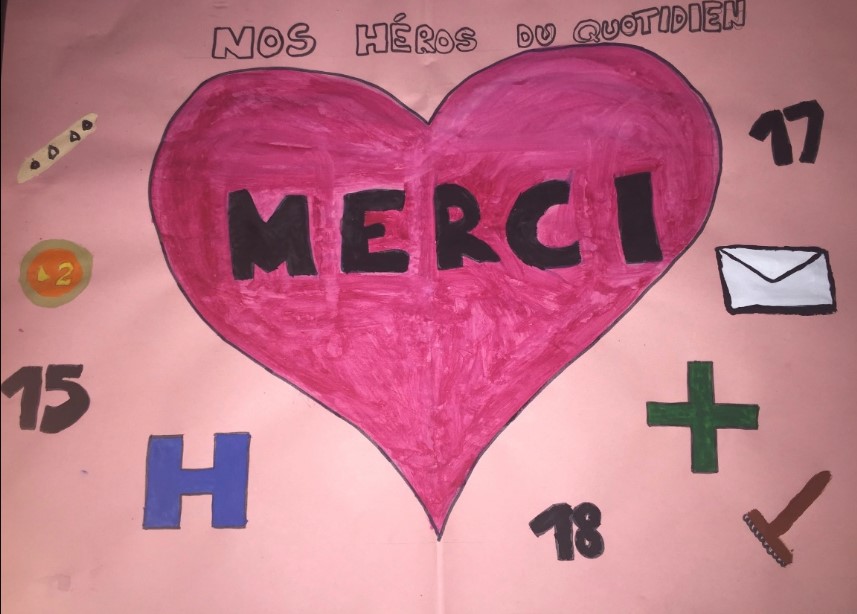 NOS HÉROS DU QUOTIDIEN
17
MERCI
2
15
H
18